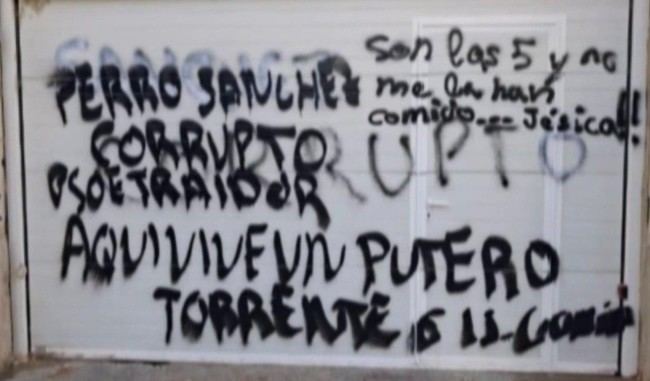 Son las 5 y no
me la han
comido... Jésica!!
PERRO SANCHEZ
CORRUPTO
CORRUPTO
PSOE TRAIDOR
AQUI VIVE UN PUTERO
TORRENTE